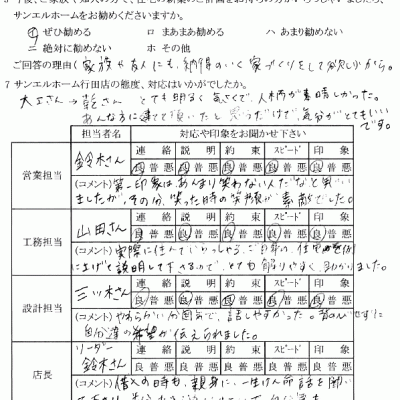 サンエルホームをお勧めくださいますか。
イ ぜひ勧める ロ まあまあ勧める ハ あまり勧めない
ニ 絶対に勧めない ホ その他
ご回答の理由( 家族や友人にも、納得のいく家づくりをして欲しいから。
7 サンエルホーム行田店の態度、対応はいかがでしたか。
大工さん→ とても明るく気さくで、人柄が素晴しかった。
あんな方に建てて頂いたと思うだけで気分がとてもいい
です。
担当者名 対応や印象をお聞かせ下さい
営業担当 鈴木さん
連絡 説明 約束 スピード 印象
良 普 悪 良 普 悪 良 普 悪 良 普 悪 良 普 悪
(コメント) 第一印象はあんまり笑わない人だなと思い
ましたが、その分、笑った時の笑顔が素敵でした。
工務担当 山田さん
連絡 説明 約束 スピード 印象
良 普 悪 良 普 悪 良 普 悪 良 普 悪 良 普 悪
(コメント) 実際に住んでいらっしゃる、ご自身の住宅を例
に上げて説明して下さるので、とても解りやすく、助かりました。
設計担当 三ツ木さん
連絡 説明 約束 スピード 印象
良 普 悪 良 普 悪 良 普 悪 良 普 悪 良 普 悪
(コメント) やわらかい雰囲気で、話しやすかった。
自分達の希望が伝えられました。
店長 リーダー
鈴木さん
連絡 説明 約束 スピード 印象
良 普 悪 良 普 悪 良 普 悪 良 普 悪 良 普 悪
(コメント) 借入の時も、親身に、一生けん命話を聞い